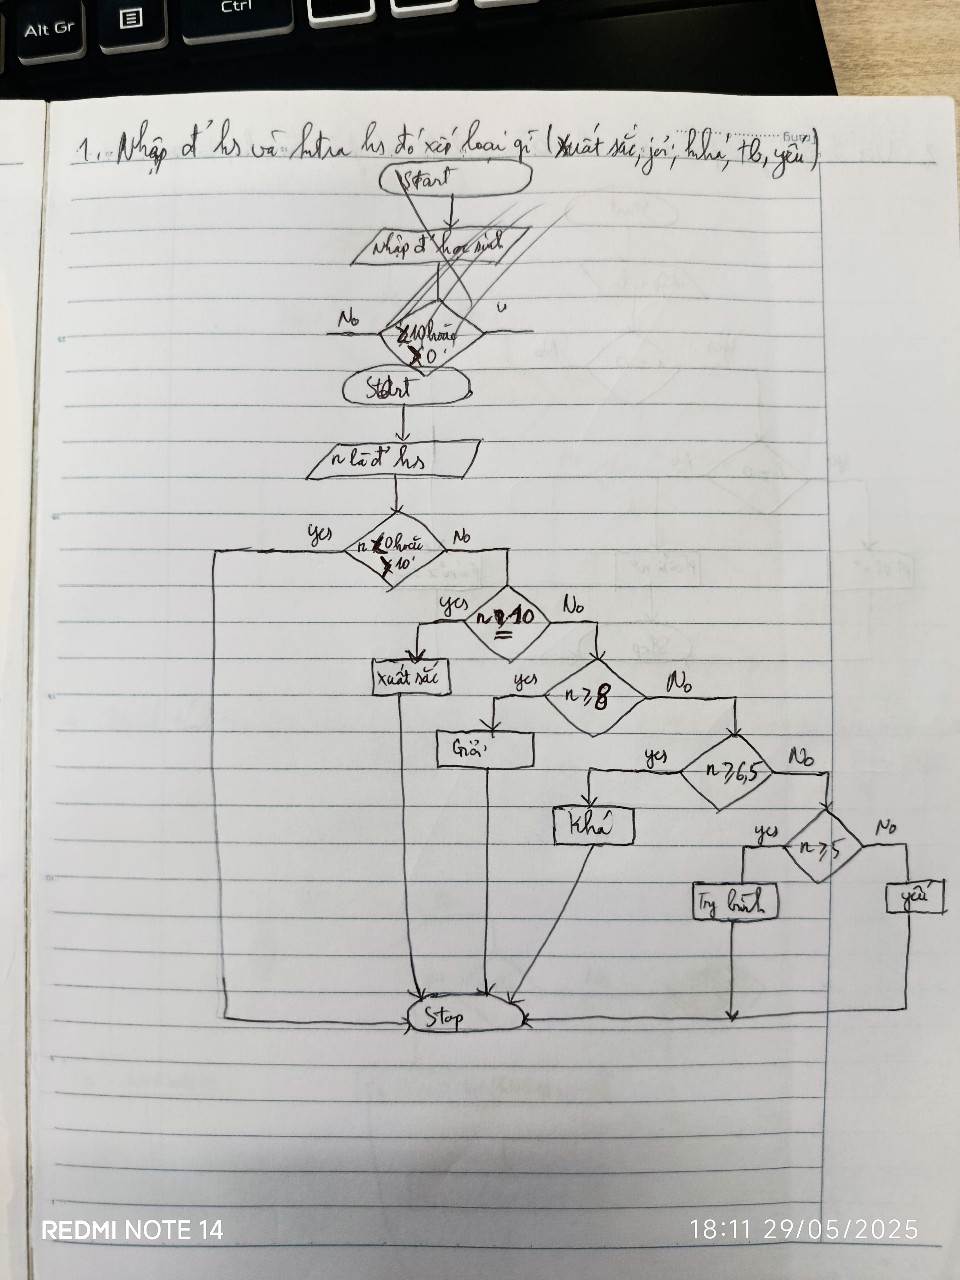 Alt Gr
Ctrl
1. Nhập đ' hs và ktra hs đó xếp loại gì (Xuất sắc, jỏi, khá, tb, yếu)
Start
Nhập đ' học sinh
No
10 hoặc
0
Start
n là đ' hs
yes
No
n 0 hoặc
10
yes
No
n = 10
Xuất sắc
yes
No
n ≥ 8
Giỏi
yes
No
n ≥ 6,5
Khá
yes
No
n ≥ 5
Trg bình
yếu
Stop
REDMI NOTE 14
18:11 29/05/2025